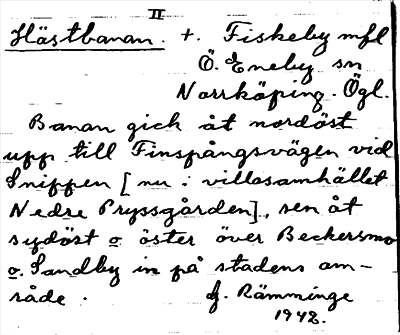 II
Hästbanan. +. Fiskeby mfl
Ö. Eneby sn
Norrköping. Ögl.
Banan gick åt nordöst
upp till Finspångsvägen vid
Snippen [nu: villasamhället
Nedre Pryssgården], sen åt
sydöst o. öster över Beckersmo
o. Sandby in på stadens om-
råde. J. Rämminge
1942.